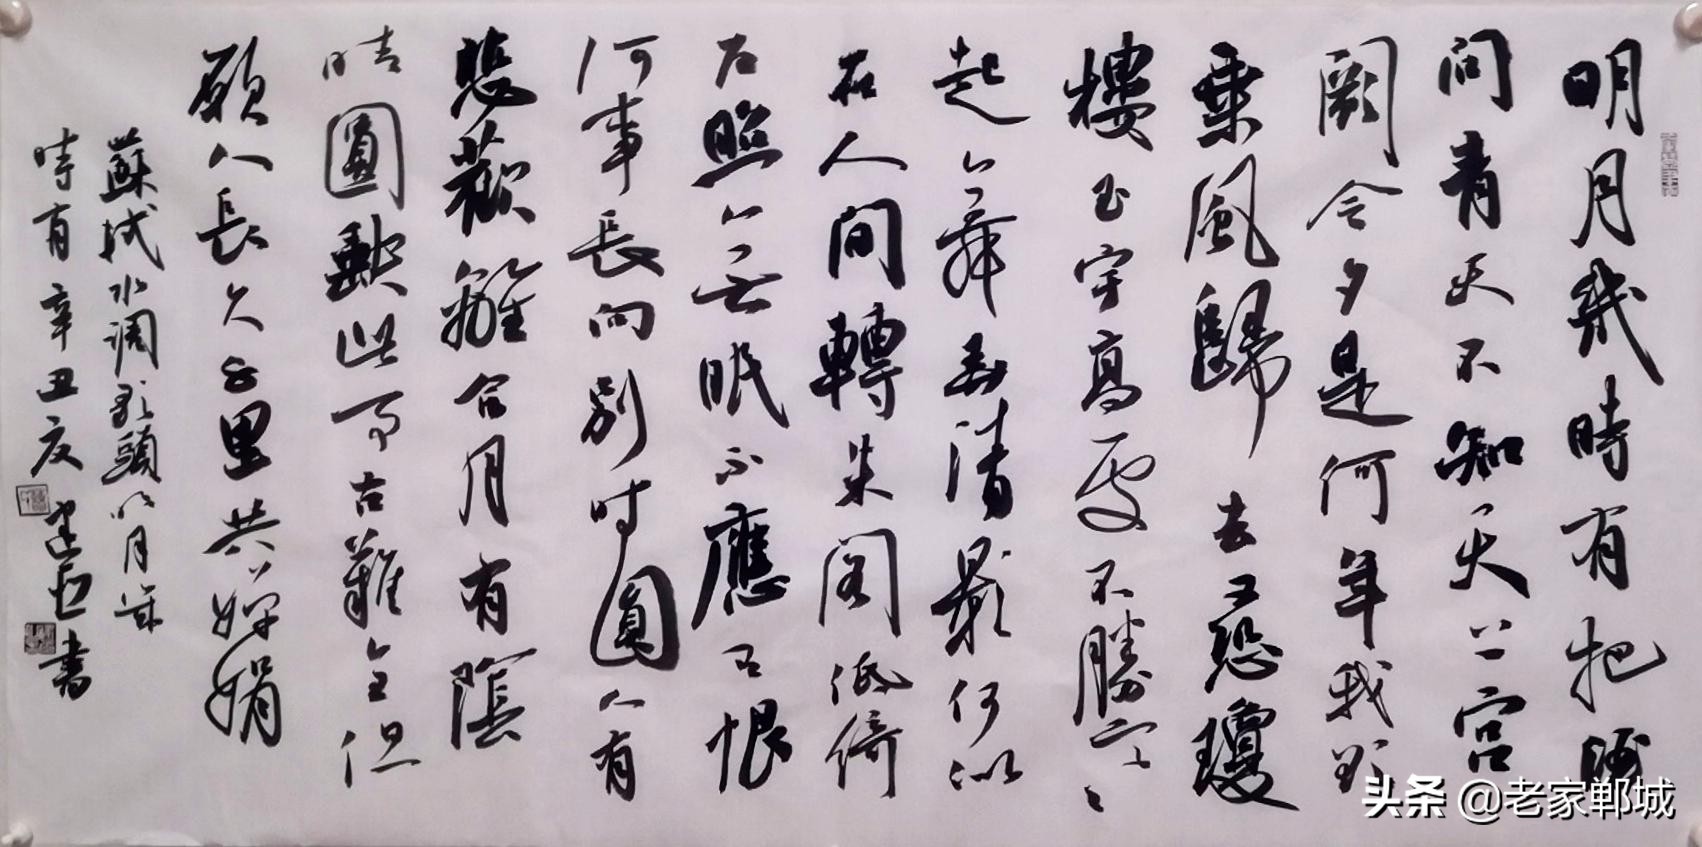 明月幾時有把酒
問青天不知天上宮
闕今夕是何年我欲
乘風歸去又恐瓊
樓玉宇高處不勝寒
起舞弄清影何似
在人間轉朱閣低綺
戶照無眠不應有恨
何事長向別時圓人有
悲歡離合月有陰
晴圓缺此事古難全但
願人長久千里共嬋娟
蘇軾水調歌頭明月
時有辛丑夏建書
头条 @老家郸城